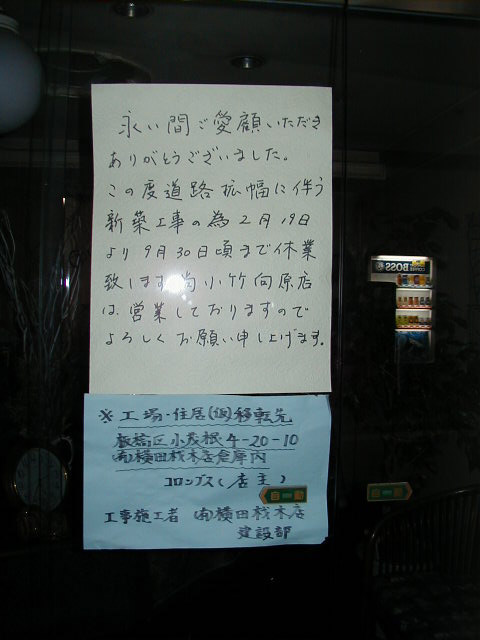 永い間ご愛顧いただき
ありがとうございました。
この度道路拡幅に伴う
新築工事の為2月19日
より9月30日頃まで休業
致します 尚小竹向原店
は営業しておりますので
よろしくお願い申し上げます。
※工場・住居(仮)移転先
板橋区小茂根4-20-10
(有)横田材木店倉庫内
コロンブス(店主)
自動
工事施工者 (有)横田材木店
建設部
自動
BOSS